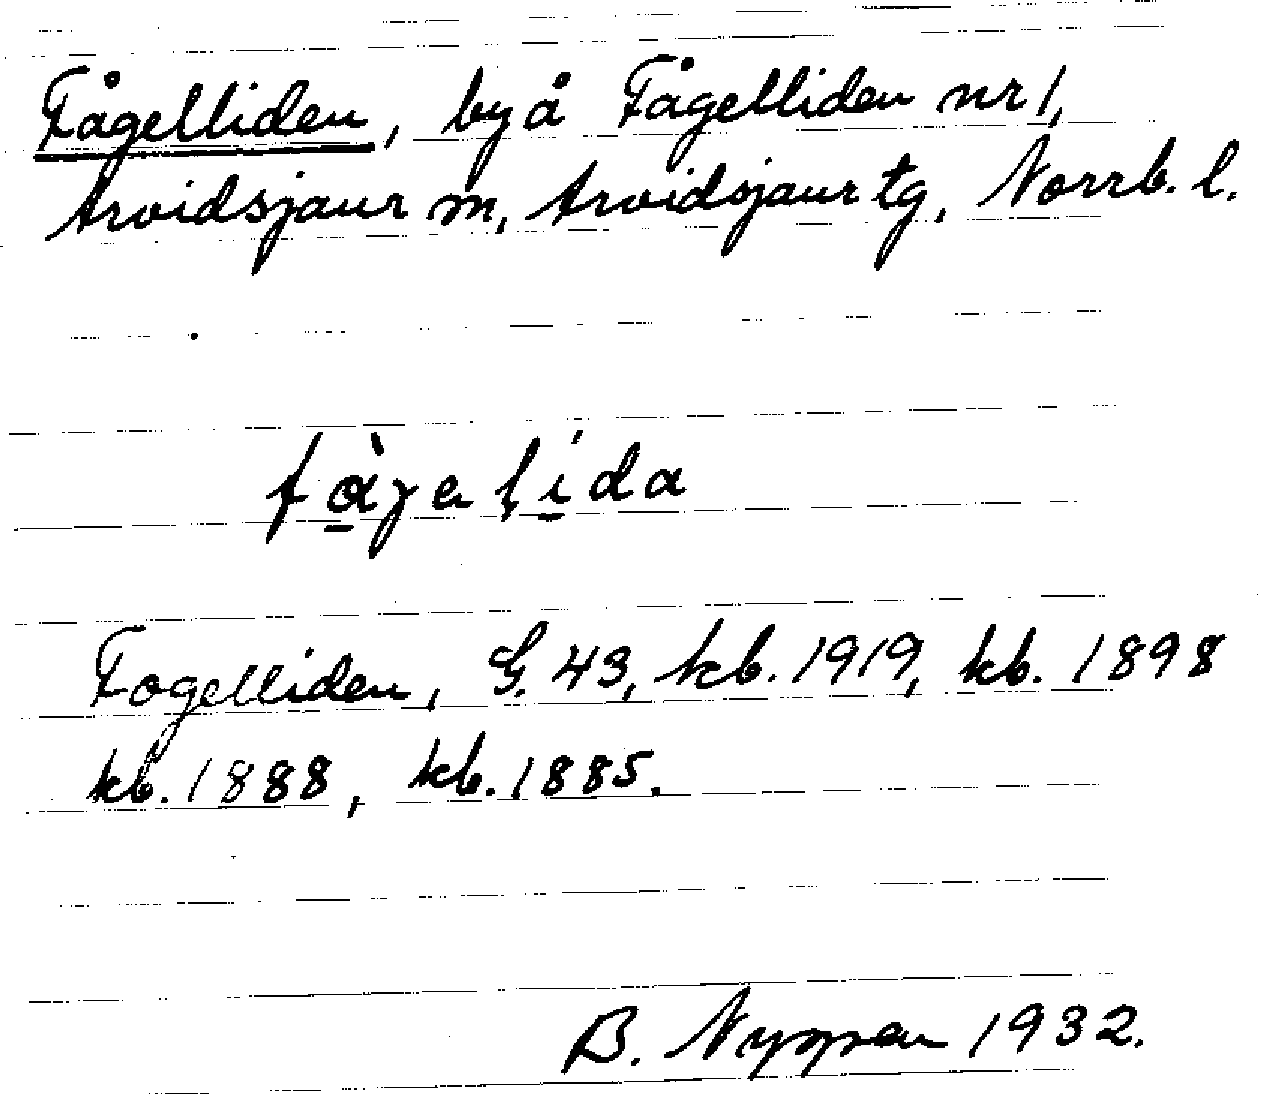 Fågelliden, by å Fågelliden nr 1,
Arvidsjaur sn, Arvidsjaur tg, Norrb. l.
Fogelliden, G. 43, kb. 1919, kb. 1898
kb. 1888, kb. 1885.
B. 1932.